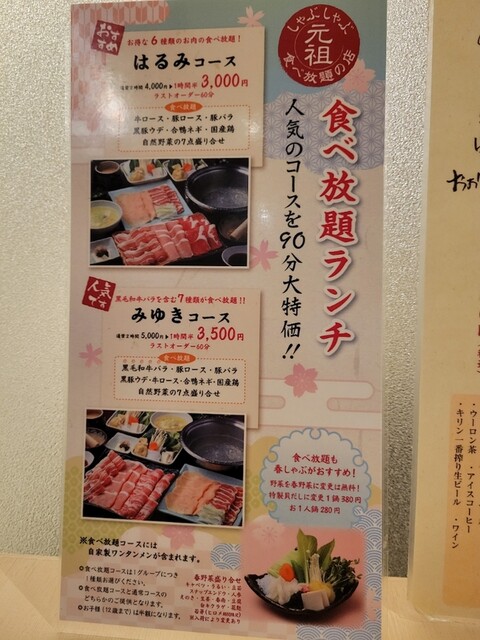 しゃぶしゃぶ
元祖
食べ放題の店
食べ放題ランチ
人気のコースを90分大特価!!
おすすめ
お得な6種類のお肉の食べ放題!
はるみコース
通常2時間 4,000円▶1時間半 3,000円
ラストオーダー60分
食べ放題
牛ロース・豚ロース・豚バラ
黒豚ウデ・合鴨ネギ・国産鶏
自然野菜の7点盛り合せ
人気です
黒毛和牛バラを含む7種類が食べ放題!!
みゆきコース
通常2時間 5,000円▶1時間半 3,500円
ラストオーダー60分
食べ放題
黒毛和牛バラ・豚ロース・豚バラ
黒豚ウデ・牛ロース・合鴨ネギ・国産鶏
自然野菜の7点盛り合せ
食べ放題も
春しゃぶがおすすめ!
野菜を春野菜に変更は無料!
特製肩だしに変更1鍋380円
お1人鍋280円
※食べ放題コースには
自家製ワンタンメンが含まれます。
食べ放題コースは1グループにつき
1種類お選びください。
食べ放題コースと通常コースの
どちらかのご提供となります。
お子様(12歳まで)は半額になります。
春野菜盛り合せ
キャベツ・うるい・豆苗
スナップエンドウ・人参
※入荷により変更あり
・ウーロン茶 ・アイスコーヒー
・キリン一番搾り生ビール ・ワイン